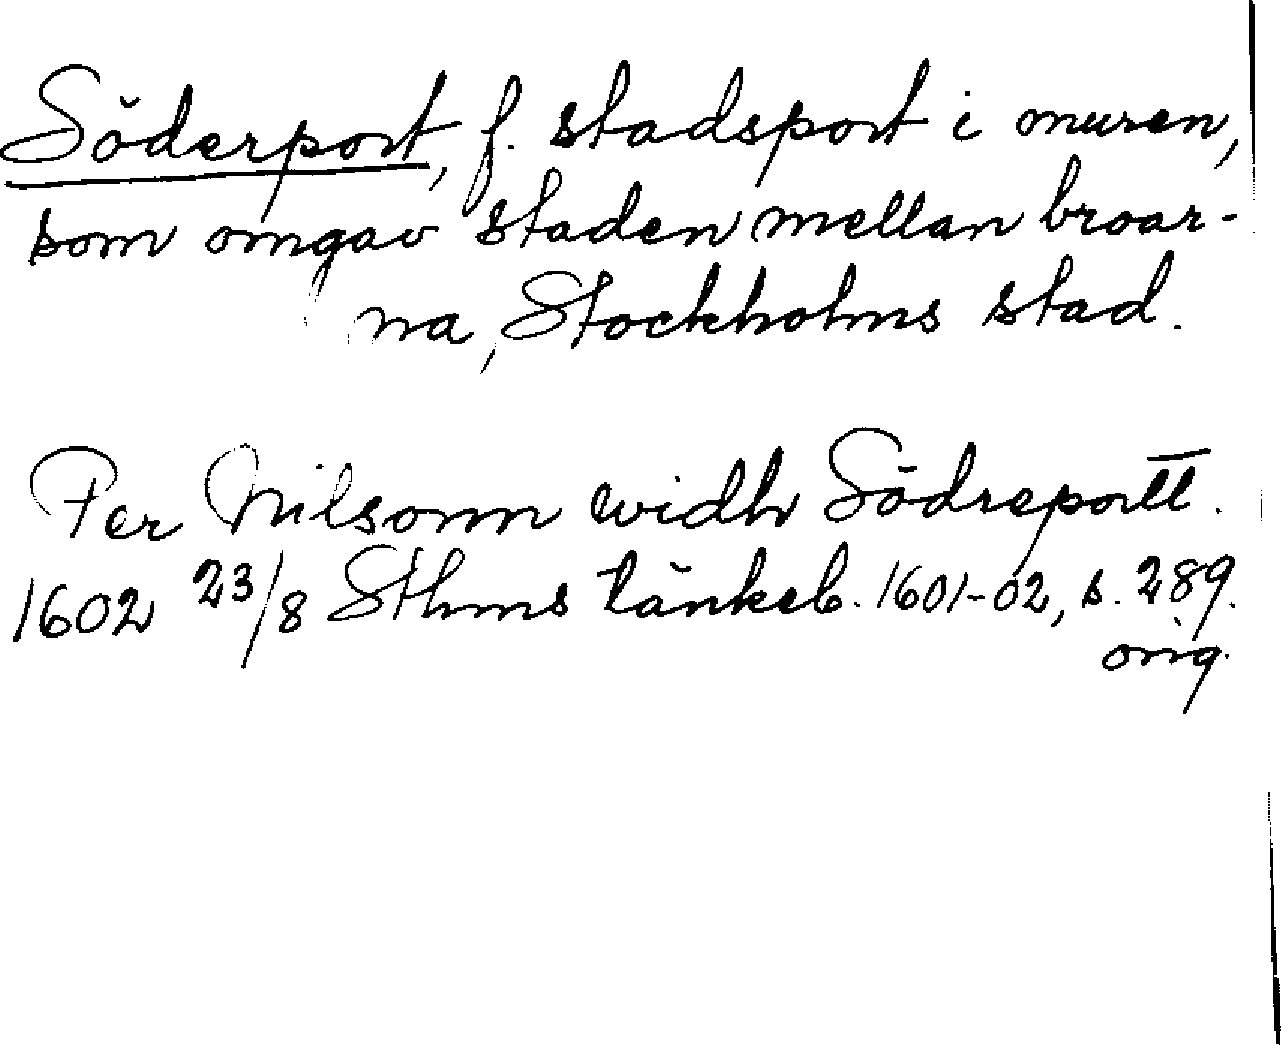 Söderport, f. stadsport i muren,
som omgav staden mellan broar-
na, Stockholms stad.
Per Nilsonn widh Södreportt.
1602 23/8 Sthms tänkeb. 1601-02, s. 289.
orig.